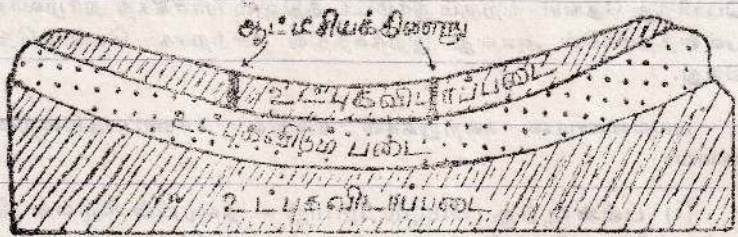 ஆட்டீசியக்கிணறு
உட்புகவிடாப்படை
உட்புகவிடும் படை
உட்புகவிடாப்படை